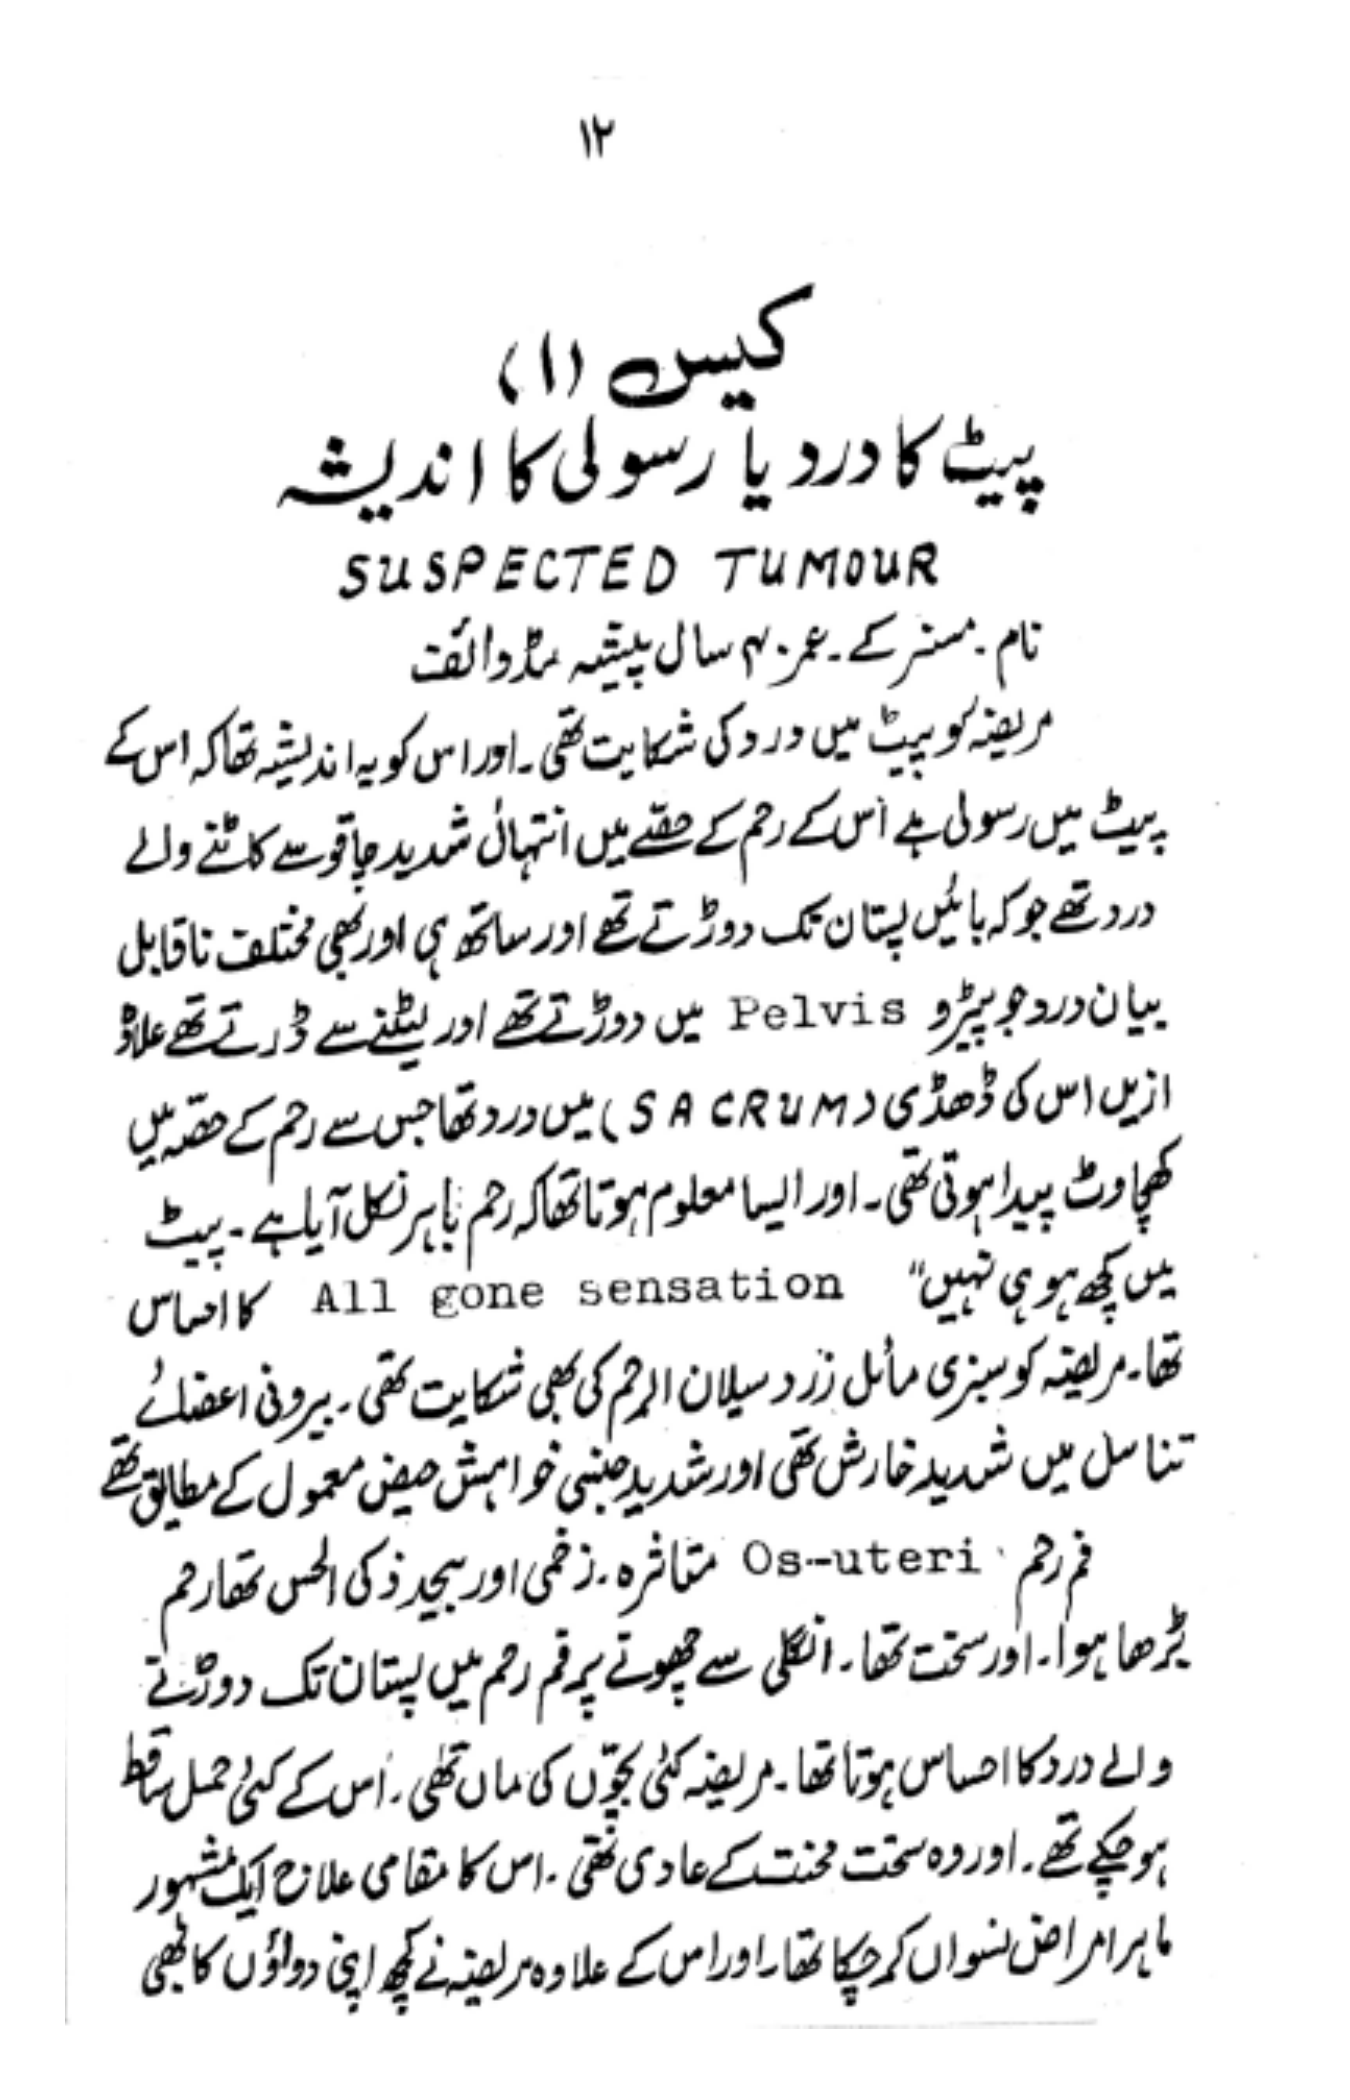 ۱۲
کیس (۱)
پیٹ کا درد یا رسولی کا اندیشہ
SUSPECTED TUMOUR
نام۔ مسز کے۔ عمر ۴۰ سال پیشہ مڈوائف
مریضہ کو پیٹ میں درد کی شکایت تھی۔ اور اس کو یہ اندیشہ تھا کہ اس کے
پیٹ میں رسولی ہے اُس کے رحم کے حصّے میں انتہائی شدید چاقو سے کاٹنے والے
درد تھے جو کہ بائیں پستان تک دوڑتے تھے اور ساتھ ہی اور بھی مختلف ناقابل
بیان درد جو پیڑو Pelvis میں دوڑتے تھے اور لیٹنے سے ڈرتے تھے علاؤ
ازیں اس کی ڈھڈی (SACRUM) میں درد تھا جس سے رحم کے حصّہ میں
کھچاوٹ پیدا ہوتی تھی۔ اور ایسا معلوم ہوتا تھا کہ رحم باہر نکل آیا ہے۔ پیٹ
میں کچھ ہو ہی نہیں" All gone sensation کا احساس
تھا۔ مریضہ کو سبزی مائل زرد سیلان الرحم کی بھی شکایت تھی۔ بیرونی اعضائے
تناسل میں شدید خارش تھی اور شدید جنسی خواہش حیض معمول کے مطابق تھے
فم رحم Os--uteri متاثرہ۔ زخمی اور بیحد ذکی الحس تھا رحم
بڑھا ہوا۔ اور سخت تھا۔ انگلی سے چھونے پر فم رحم میں پستان تک دوڑنے
والے درد کا احساس ہوتا تھا۔ مریضہ کئی بچّوں کی ماں تھی۔ اُس کے کئی حمل ساقط
ہو چکے تھے۔ اور وہ سخت محنت کے عادی تھی۔ اس کا مقامی علاج ایک مشہور
ماہر امراض نسواں کر چکا تھا۔ اور اس کے علاوہ مریضہ نے کچھ اپنی دواؤں کا بھی